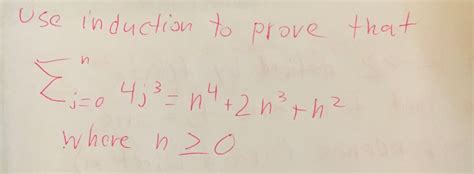 Use induction to prove that
∑ⁿⱼ₌₀ 4j³ = n⁴ + 2n³ + n²
where n ≥ 0